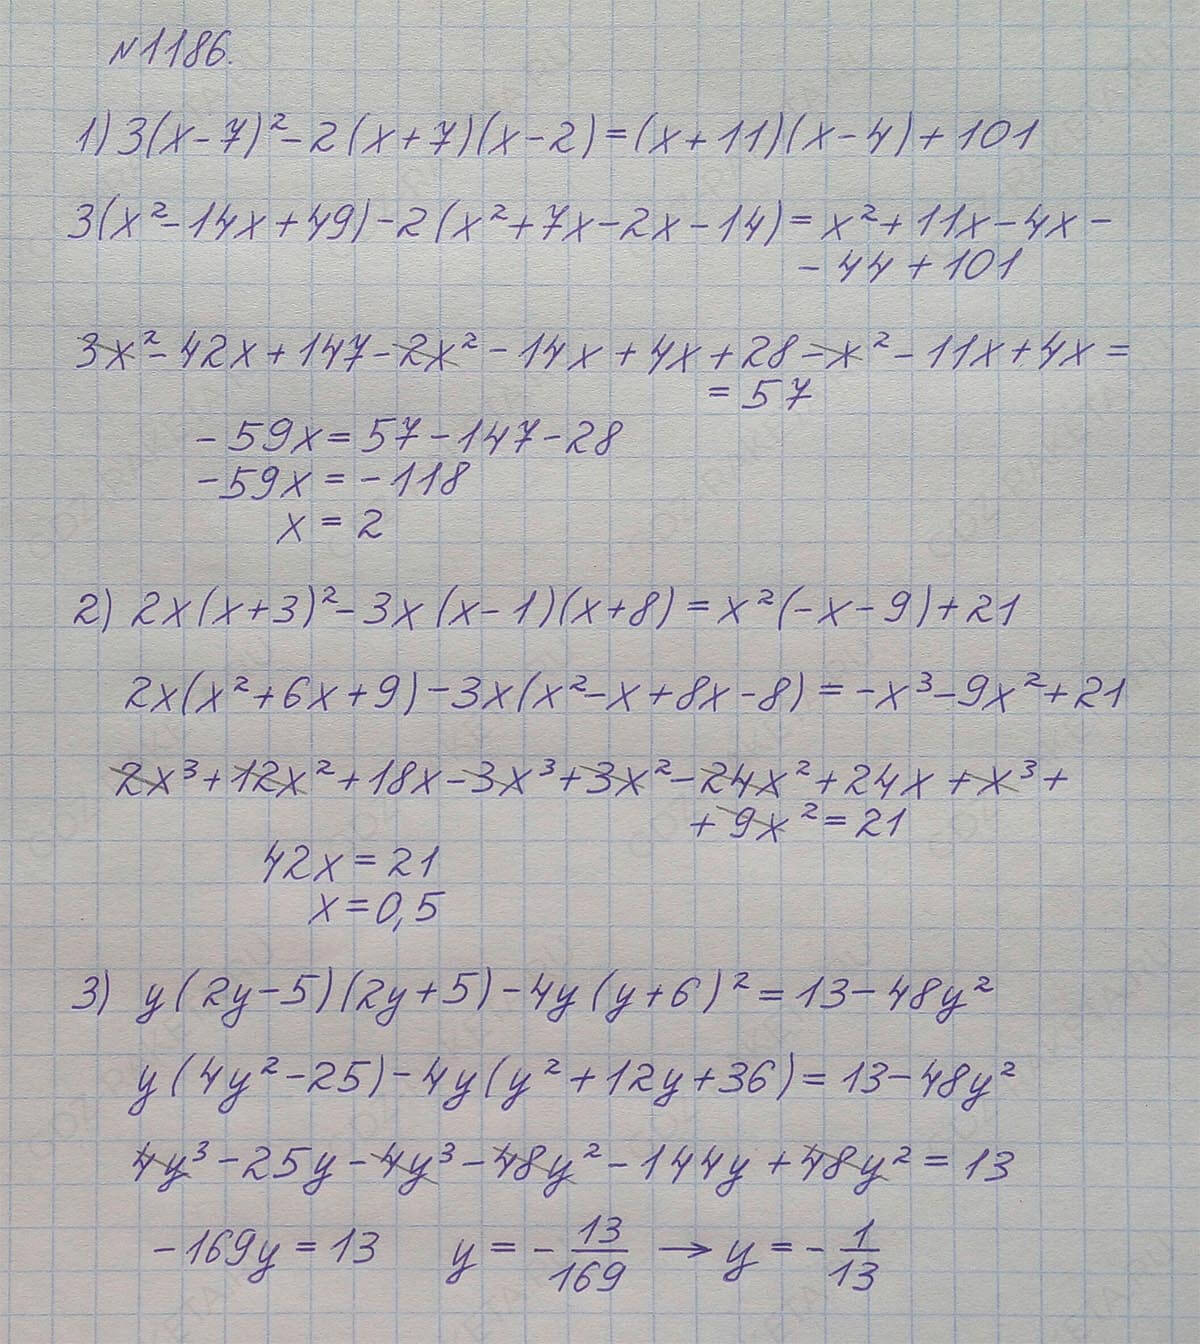 №1186.
1) 3(x-7)²-2(x+7)(x-2)=(x+11)(x-4)+101
3(x²-14x+49)-2(x²+7x-2x-14)=x²+11x-4x-
-44+101
3x²-42x+147-2x²-14x+4x+28-x²-11x+4x=
=57
-59x=57-147-28
-59x=-118
x=2
2) 2x(x+3)²-3x(x-1)(x+8)=x²(-x-9)+21
2x(x²+6x+9)-3x(x²-x+8x-8)=-x³-9x²+21
2x³+12x²+18x-3x³+3x²-24x²+24x+x³+
+9x²=21
42x=21
x=0,5
3) y(2y-5)(2y+5)-4y(y+6)²=13-48y²
y(4y²-25)-4y(y²+12y+36)=13-48y²
4y³-25y-4y³-48y²-144y+48y²=13
-169y=13 y=-13/169 → y=-1/13